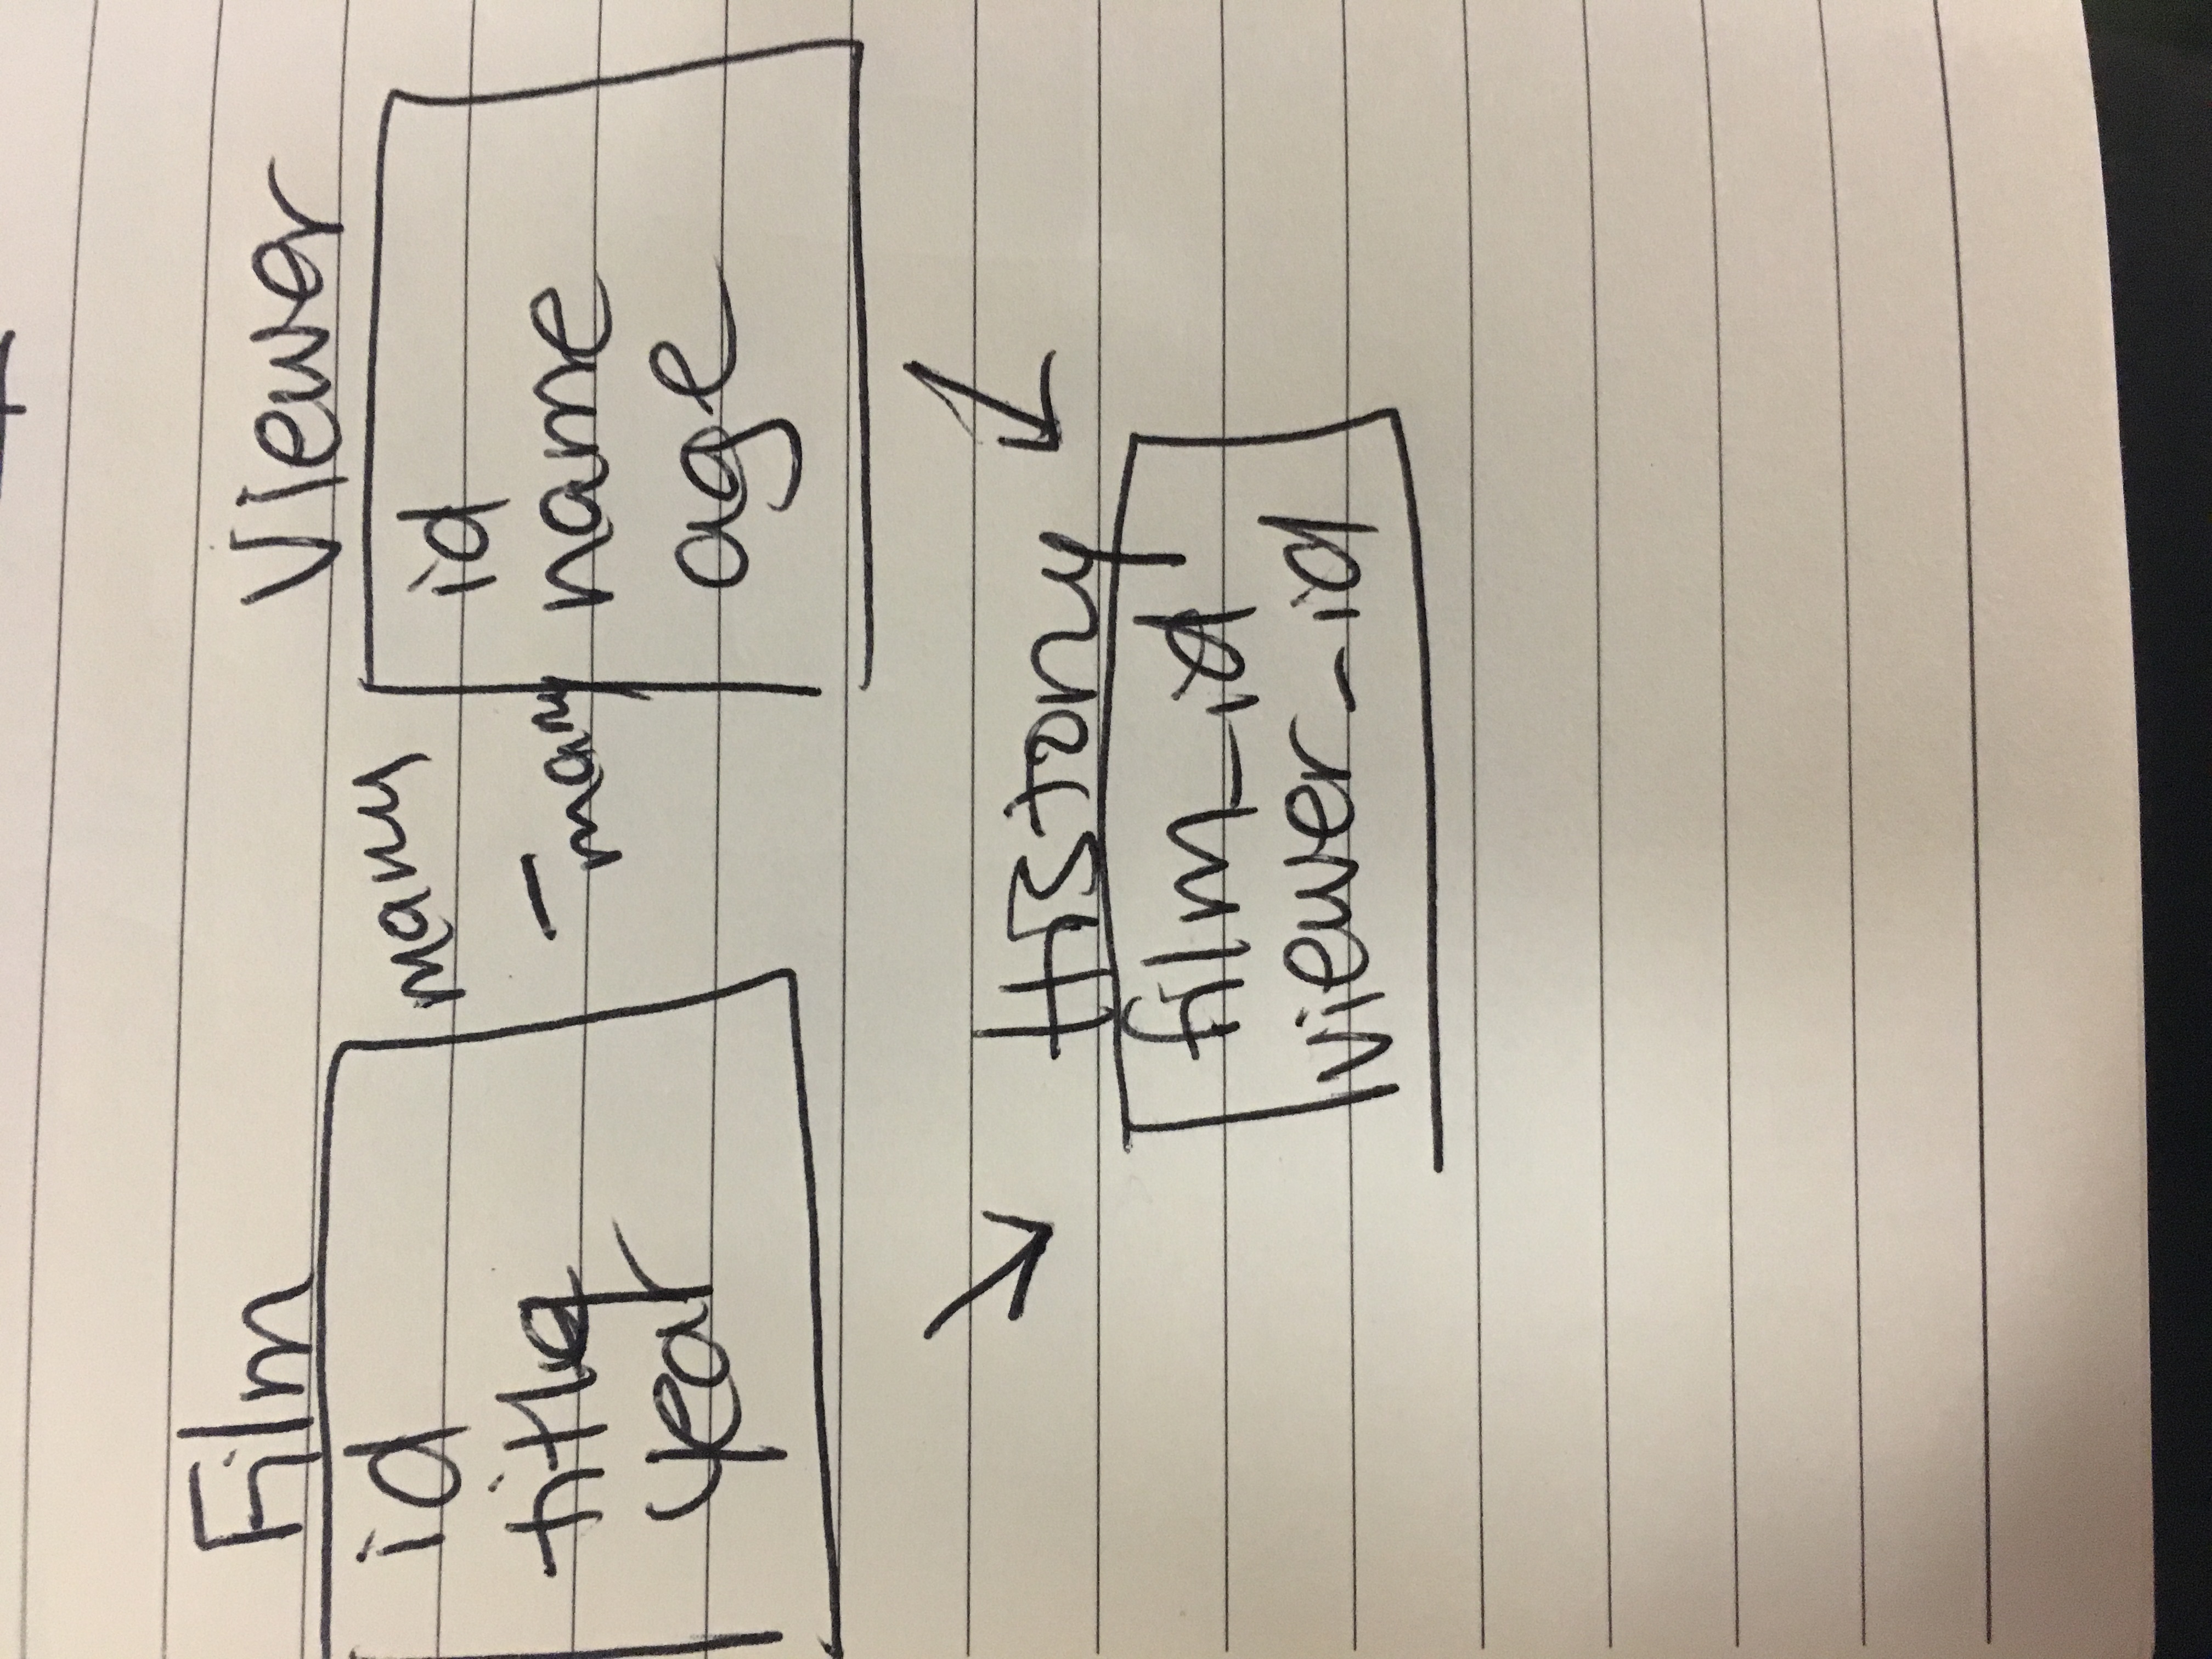 Film
id
title
year
many
-many
Viewer
id
name
age
History
film_id
viewer_id